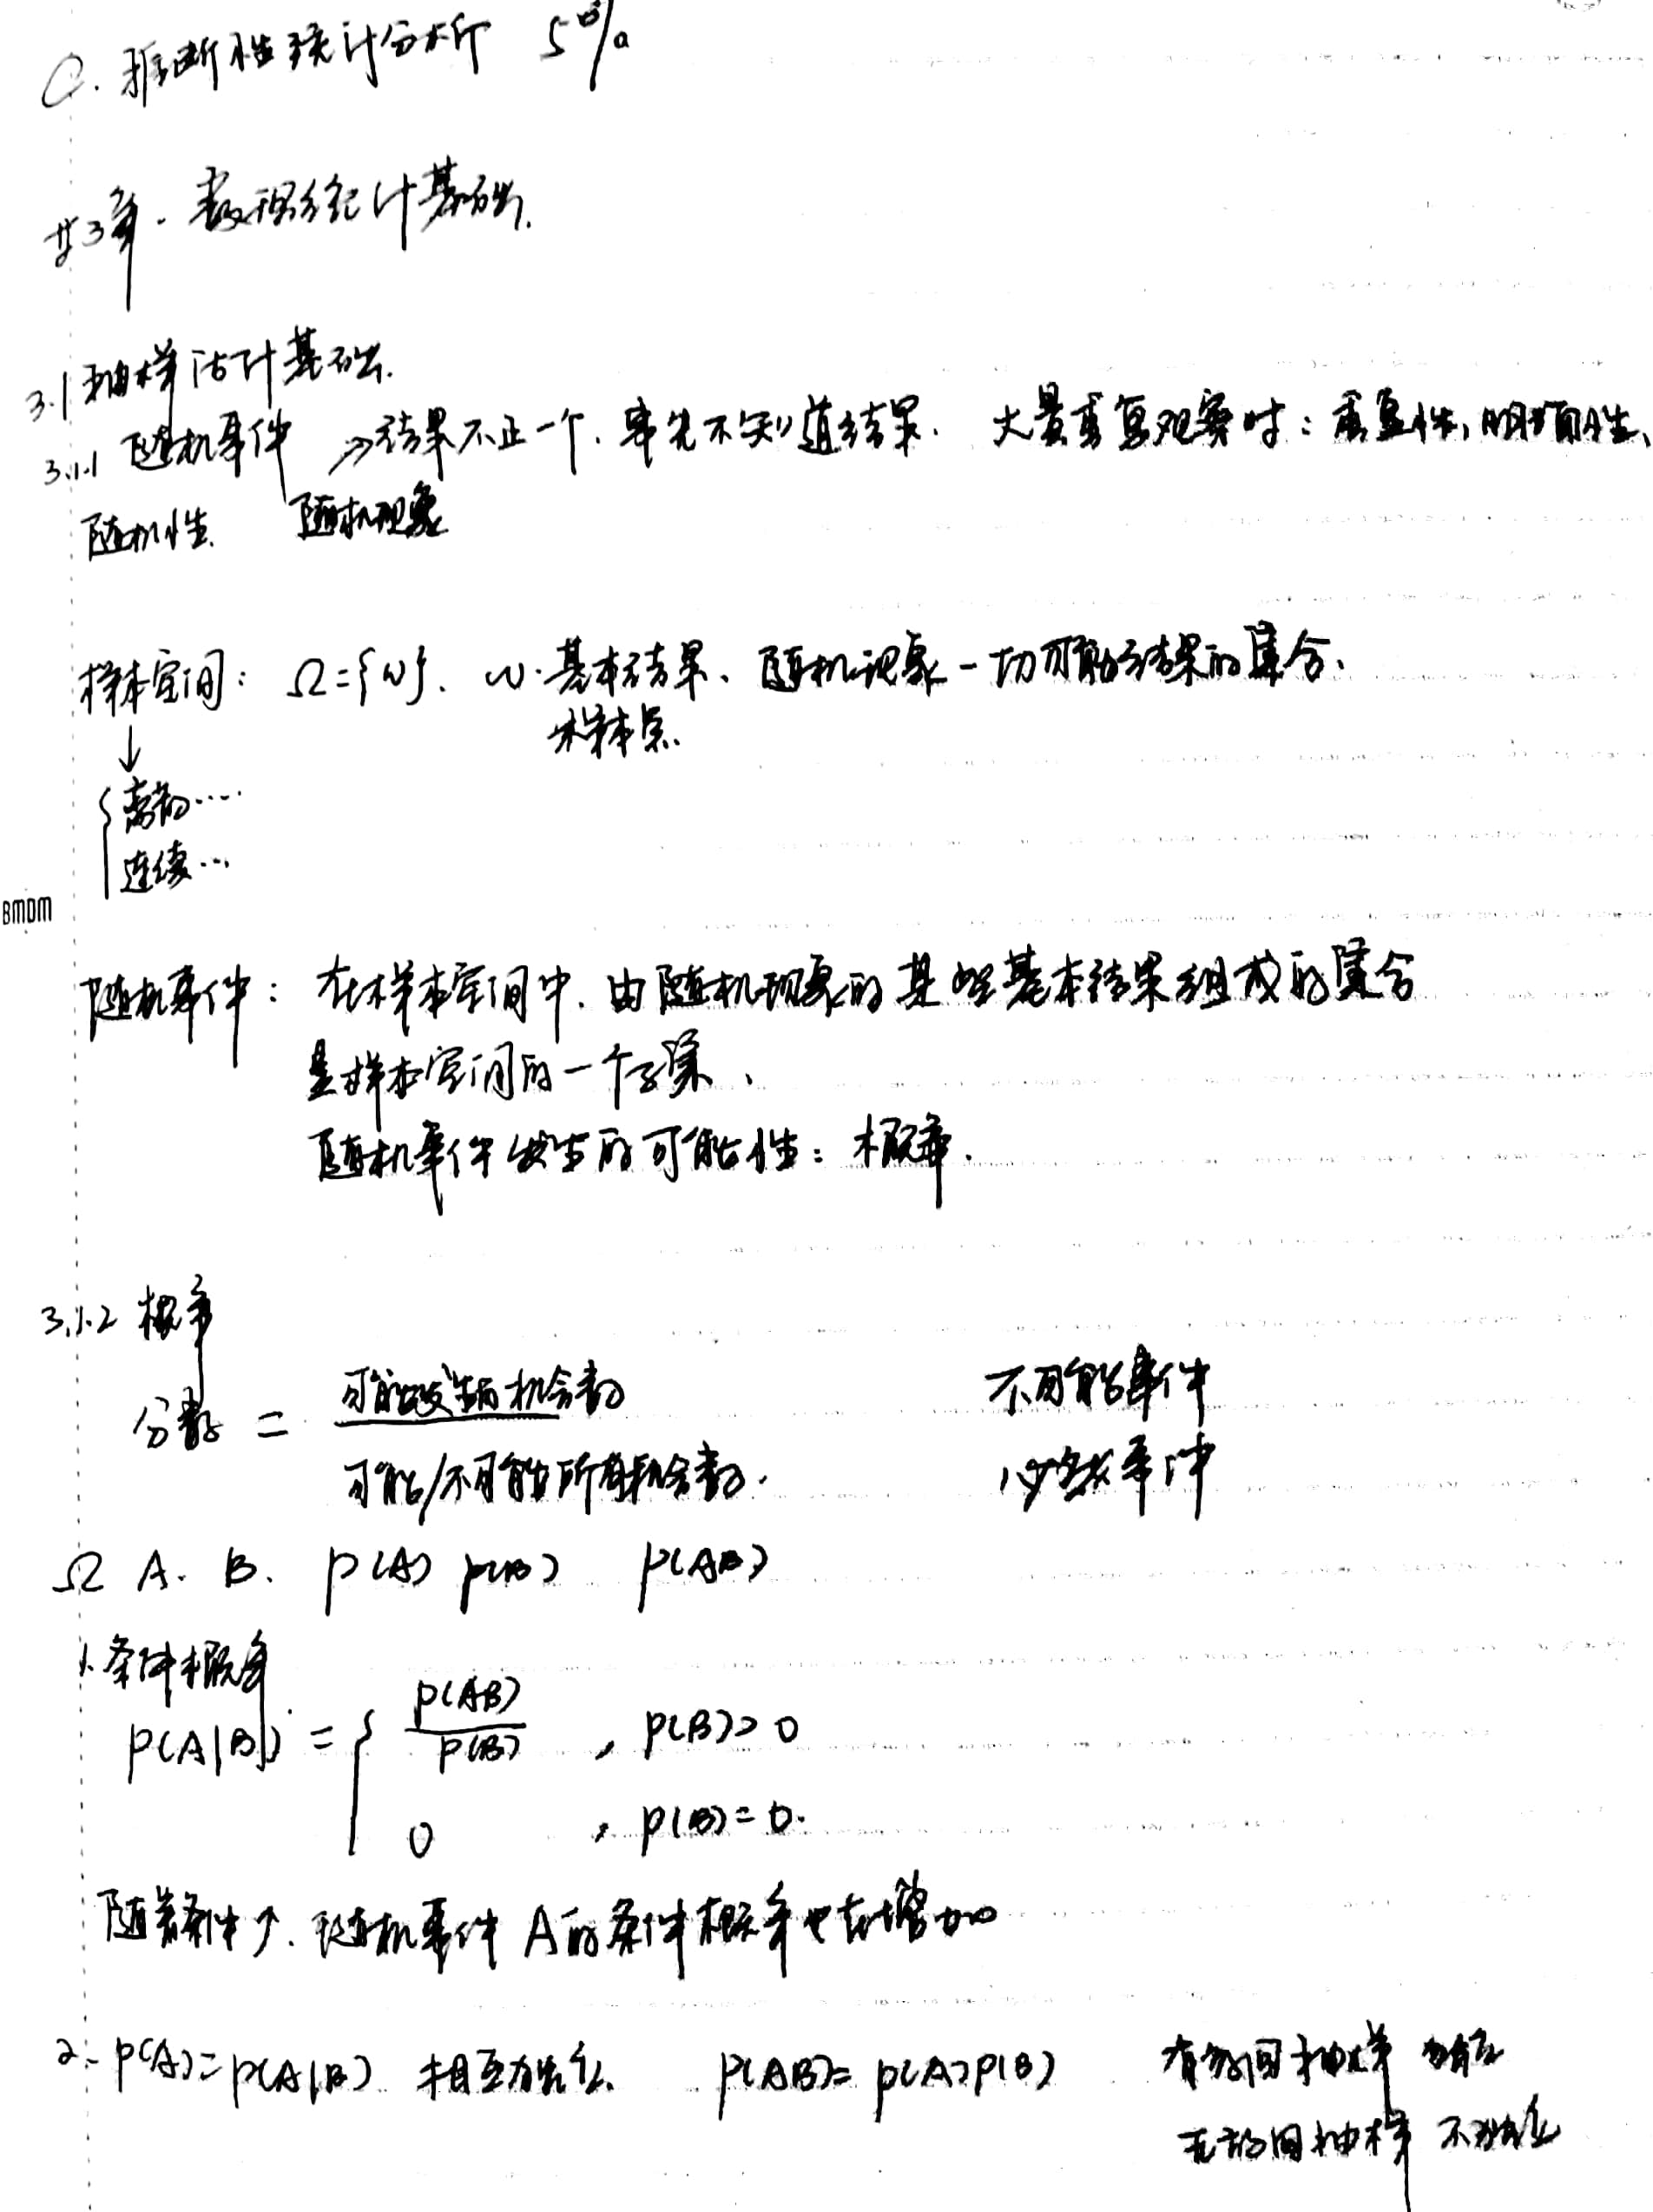 C. 推断性统计分析 5%
第3章. 数理统计基础.
3.1 抽样估计基础.
3.1.1 随机事件 → 结果不止一个. 事先不知道结果. 大量重复观察时: 重复性, 明确性、
随机性. 随机现象
样本空间: Ω={ω}. ω: 基本结果、随机现象一切可能结果的集合.
样本点.
↓
离散……
连续…
BMDM
随机事件: 在样本空间中, 由随机现象的某些基本结果组成的集合
是样本空间的一个子集、
随机事件发生的可能性: 概率.
3.1.2 概率
分数 = 可能发生的机会数 不可能事件
可能/不可能所有机会数. 必然事件
Ω A. B. P(A) P(B) P(AB)
1. 条件概率
P(A|B) = { P(AB)/P(B) , P(B)>0
0 , P(B)=0.
随着条件↑. 随机事件 A的条件概率也在增加
2. P(A)=P(A|B) 相互独立. P(AB)= P(A)P(B) 有放回抽样 独立
无放回抽样 不独立